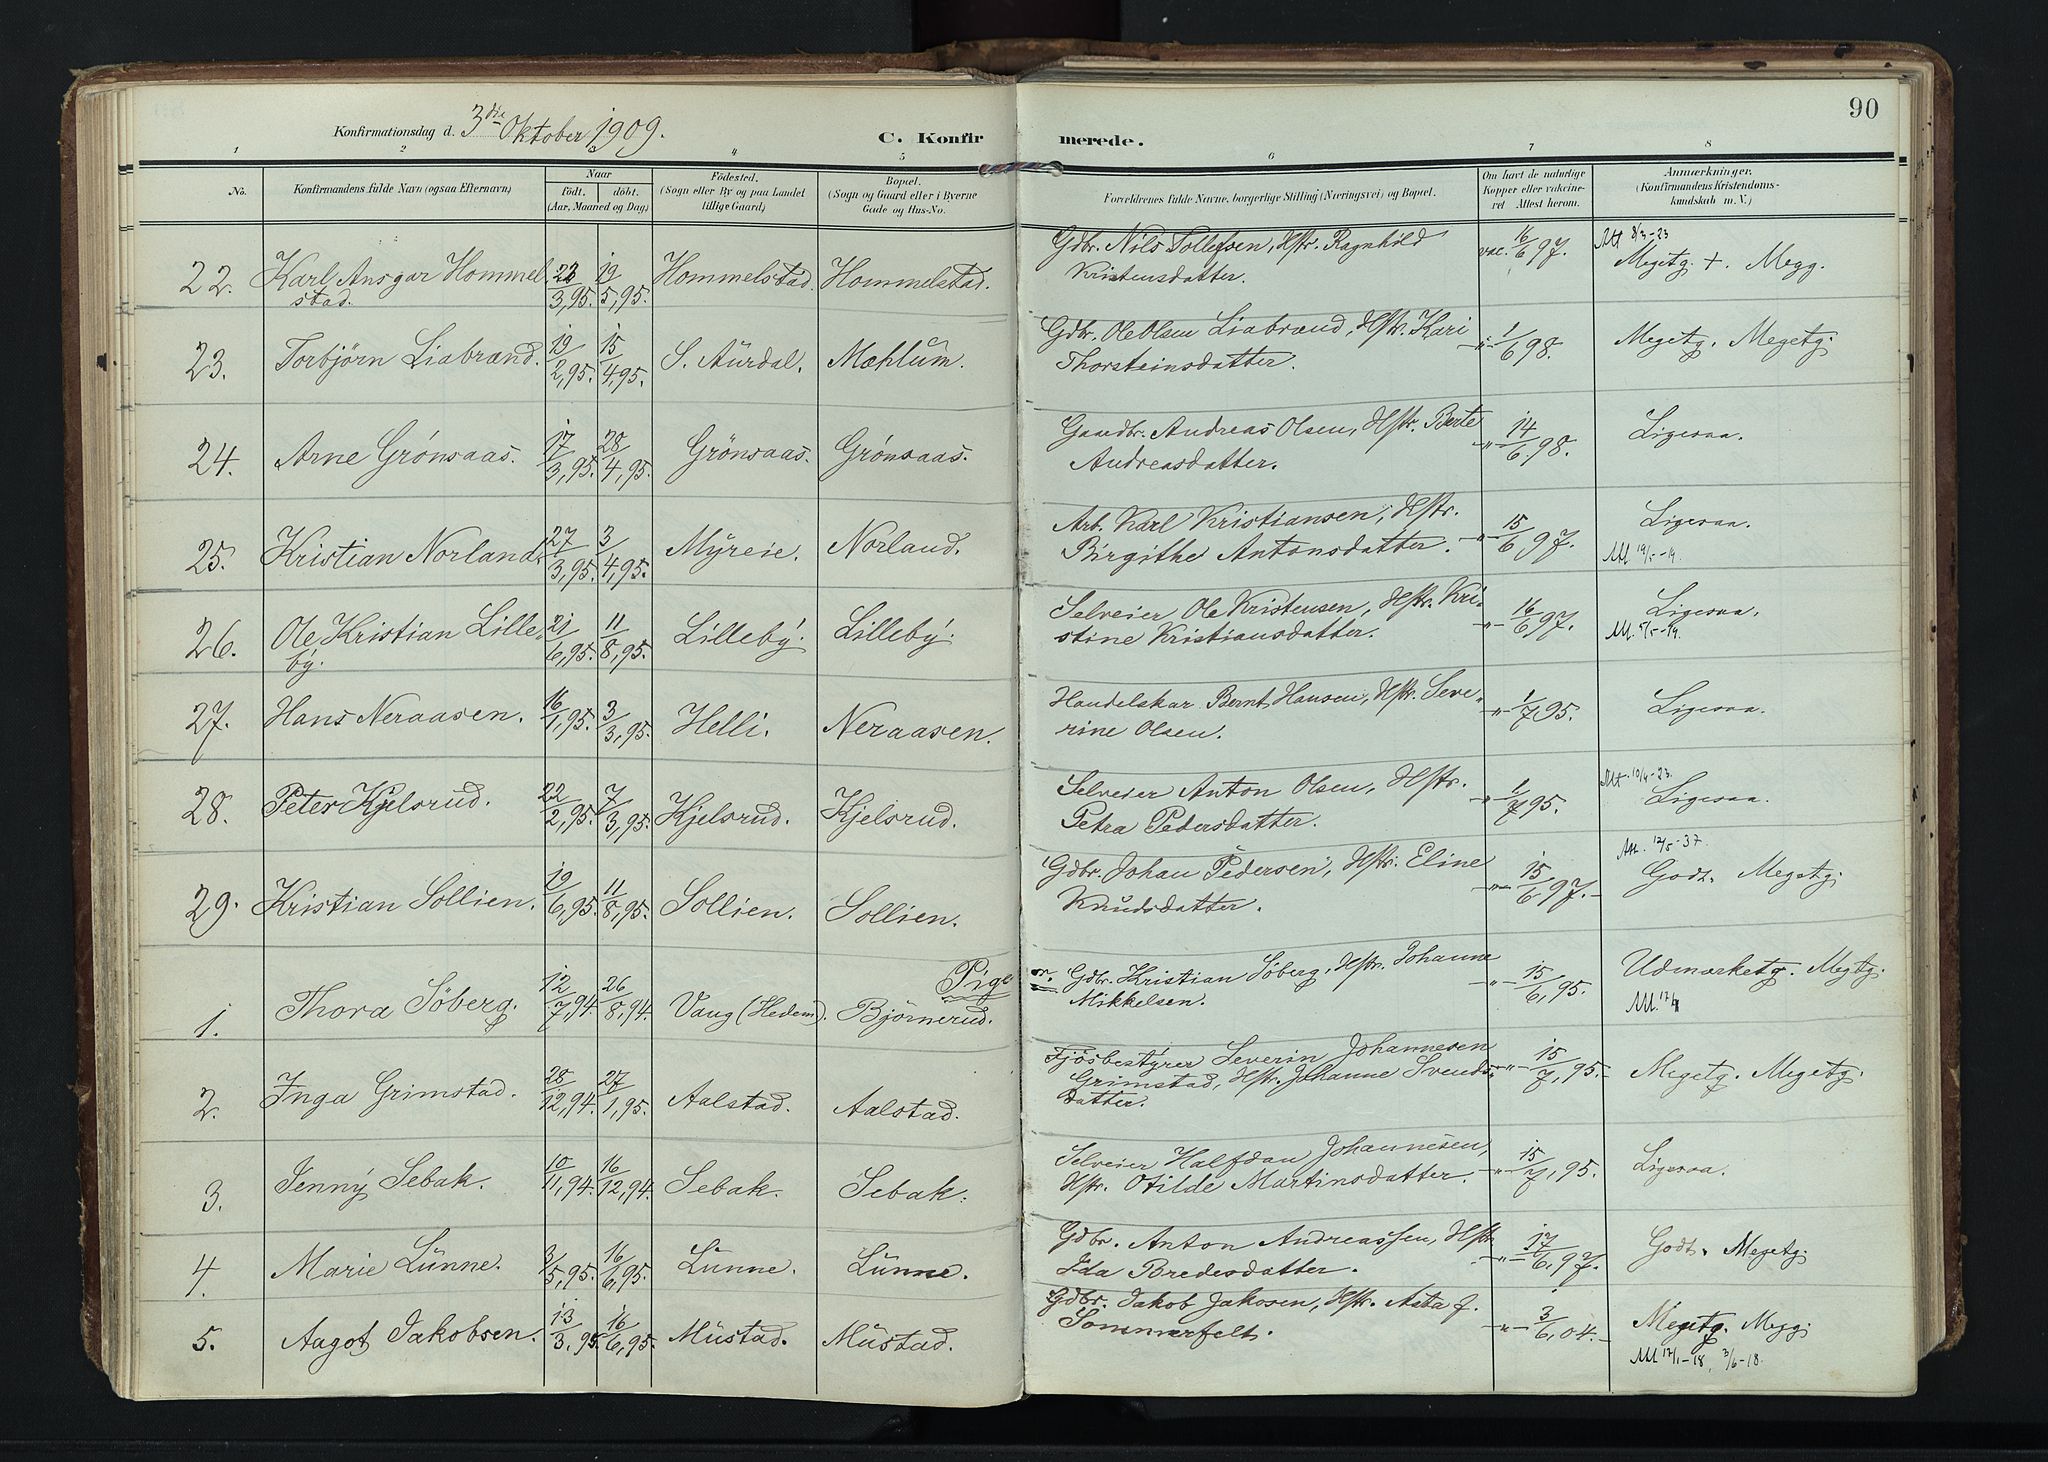 90
Konfirmationsdag d. 3die Oktober 1909.
C. Konfirmerede.
1 2 3 4 5 6 7 8
No. Konfirmandens fulde Navn (ogsaa Efternavn) Naar født. døbt. (Aar, Maaned og Dag) Fødested. (Sogn eller By og paa Landet tillige Gaard) Bopæl. (Sogn og Gaard eller i Byerne Gade og Hus-No. Forældrenes fulde Navne, borgerlige Stilling (Næringsvei) og Bopæl. Om havt de naturlige Kopper eller vakcineret Attest herom. Anmærkninger. (Konfirmandens Kristendomskundskab m. V.)
22. Karl Ansgar Hommelstad. 22/3,95. 19/5,95. Hommelstad. Hommelstad. Gdbr. Nils Tollefsen, Hstr. Ragnhild Kristensdatter. vac. 16/6 97. Att 8/3-23 Megetg. +. Megg.
23. Torbjörn Liabrænd. 19/2,95. 15/4,95. S. Aurdal. Mæhlum. Gdbr. Ole Olsen Liabrænd, Hstr. Kari Thorsteinsdatter. -"- 1/6 98. Megetg. Megetg.
24. Arne Grønsaas. 17/3,95. 28/4,95. Grönsaas. Grønsaas. Gaardbr. Andreas Olsen, Hstr. Berte Andreasdatter. -"- 14/6 98. Ligesaa.
25. Kristian Norland. 27/3,95. 3/4,95. Myreie. Norland. Arb. Karl Kristiansen, Hstr. Birgithe Antonsdatter. -"- 15/6 97. Ligesaa. Att 19/5-19.
26. Ole Kristian Lilleby. 21/6,95. 11/8,95. Lilleby. Lilleby. Selveier Ole Kristensen, Hstr. Kristine Kristiansdatter. -"- 16/6 97. Ligesaa. Att. 5/5-19.
27. Hans Neraasen. 16/1,95. 3/3,95. Helli. Neraasen. Handelskar Bernt Hansen, Hstr. Severine Olsen. -"- 1/7 95. Ligesaa.
28. Peter Kjelsrud. 22/2,95. 7/3,95. Kjelsrud. Kjelsrud. Selveier Anton Olsen, Hstr. Petra Pedersdatter. -"- 1/7 95. Att. 10/4-23. Ligesaa.
29. Kristian Sollien. 19/6,95. 11/8,95. Sollien. Sollien. Gdbr. Johan Pedersen, Hstr. Eline Knudsdatter. -"- 15/6 97. Att. 12/5-37. Godt. Megetg.
Piger.
1. Thora Söberg. 12/7,94. 26/8,94. Vang (Hedem). Björnerud. Gdbr. Kristian Søberg, Hstr. Johanne Mikkelsen. -"- 15/6,95. Udmærketg. Megtg.
2. Inga Grimstad. 28/12,94. 27/1,95. Aalstad. Aalstad. Fjøsbestyrer Severin Johannesen Grimstad, Hstr. Johanne Svendsdatter. -"- 15/7,95. Megetg. Megetg.
3. Jenny Sebak. 10/11,94. 16/12,94. Sebak. Sebak. Selveier Halfdan Johannesen, Hstr. Otilde Martinsdatter. -"- 15/7,95. Ligesaa.
4. Marie Lunne. 3/5,95. 16/6,95. Lunne. Lunne. Gdbr. Anton Andreassen, Hstr. Ida Bredesdatter. -"- 17/6,97. Godt. Megetg.
5. Aagot Jakobsen. 13/3,95. 16/6,95. Mustad. Mustad. Gdbr. Jakob Jakosen, Hstr. Asta f. Sommerfelt. -"- 3/6,04. Megetg. Megg. Att 12/1-18, 3/6-18.